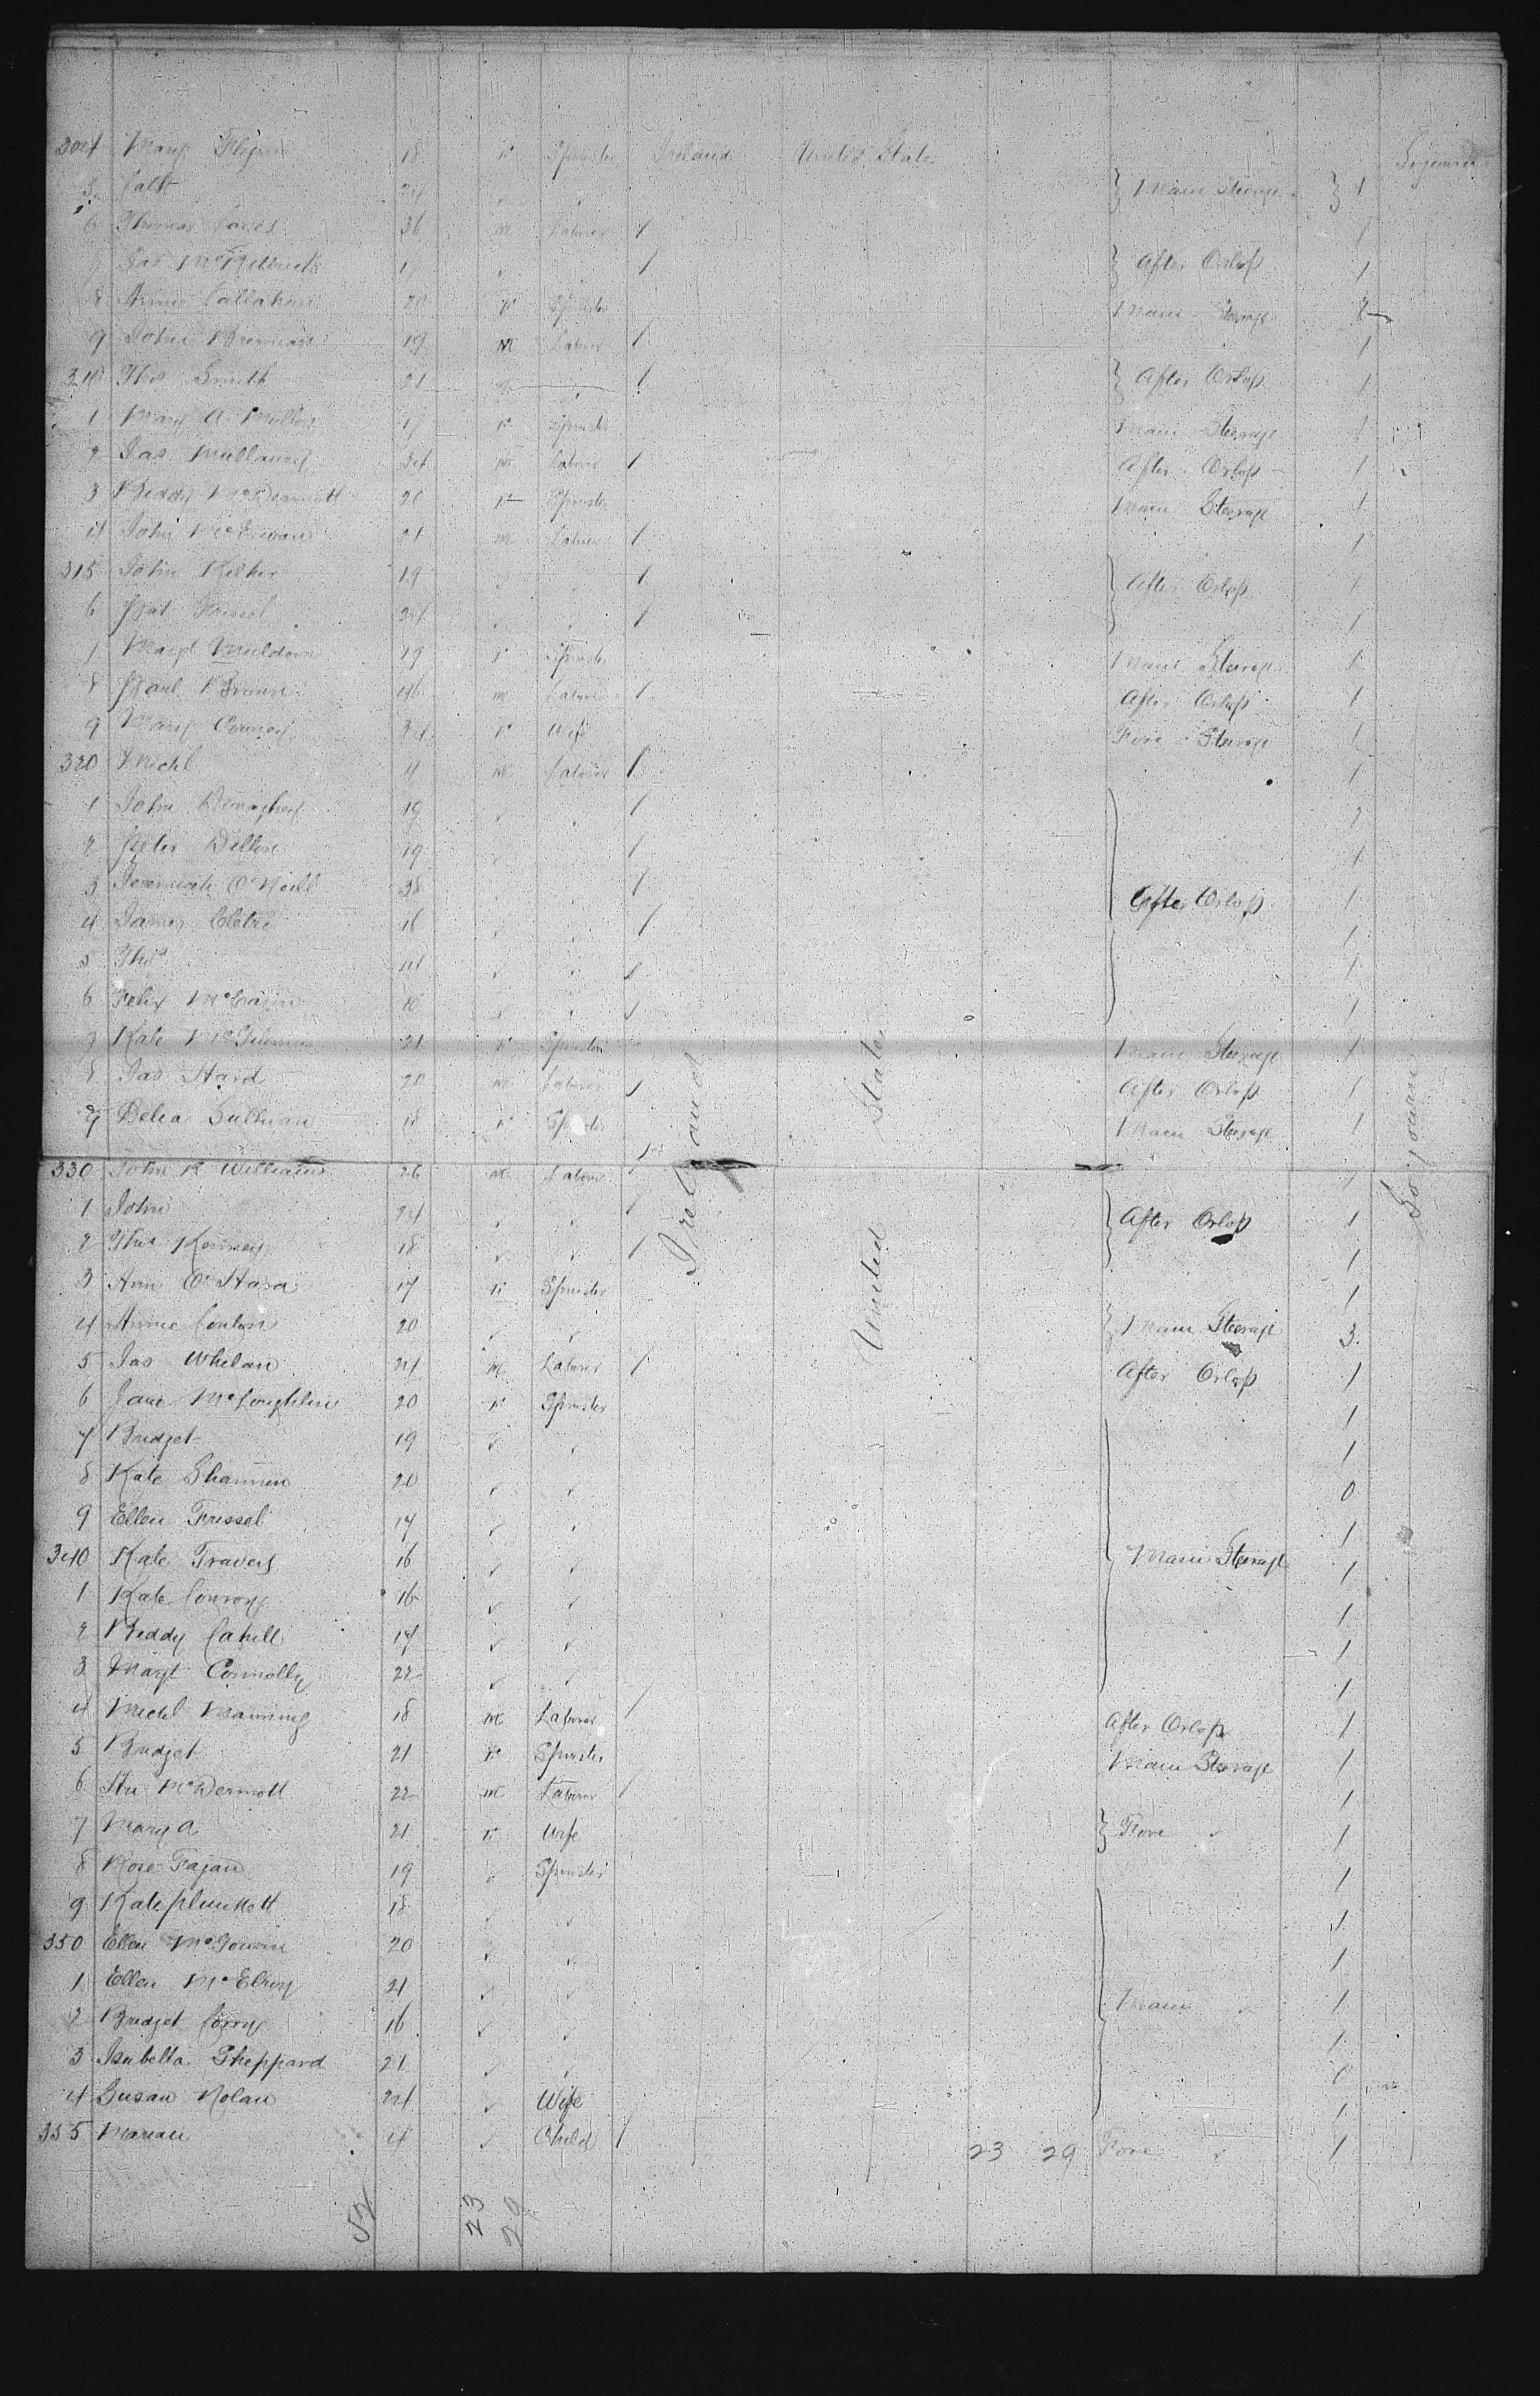 304 Mary Flynn 18 F Spinster Ireland United States Sojourn
5 Cath 24 " " Main Steerage 1
6 Thomas 36 M Laborer 1 1
7 Jas McKitrick 17 " 1 After Orlop 1
8 Annie Callahan 20 F Spinster Main Steerage 2
9 John Brennan 19 M Laborer 1 1
310 Thos Smith 21 M 1 After Orlop 1
1 Mary A. 17 F Spinster Main Steerage 1
2 Jas Mullaney 34 M Laborer 1 After Orlop 1
3 Biddy McDermott 20 F Spinster Main Steerage 1
4 John 21 M Laborer 1 1
315 John 19 " " 1 After Orlop 1
6 Pat 24 " " 1 1
7 Margt Muldoon 19 F Spinster Main Steerage 1
8 Paul 46 M Laborer 1 After Orlop 1
9 Mary 34 F Wife Fore Steerage 1
320 Michl 4 M Laborer 1 1
1 John 19 " 1 2
2 Peter Dillon 19 " " 1 1
3 Jeremiah O'Neill 38 " " 1 After Orlop 1
4 James 16 " " 1 1
5 Thos 14 " " 1 1
6 Felix McCann " " 1 1
7 Kate 21 F Spinster Main Steerage 1
8 Jas Hard 20 M Laborer 1 After Orlop 1
9 Delia Sullivan 18 F Spinster Main Steerage 1
330 John R Williams 26 M Laborer 1 1
1 John 24 " " 1 After Orlop 1
2 Thos Kenney 18 " " 1 1
3 Ann O'Hara 17 F Spinster 1
4 Annie Conlon 20 " " Main Steerage 3
5 Jas Whelan 24 M Laborer 1 After Orlop 1
6 Jane McLoughlin 20 F Spinster 1
7 Bridget 19 " " 1
8 Kate Shannon 20 " " 0
9 Ellen Frissel 17 " " 1
340 Kate Travers 16 " " Main Steerage 1
1 Kate Conroy 16 " " 1
2 Biddy Cahill 17 " " 1
3 Margt Connolly 22 " " 1
4 Michl Manning 18 M Laborer 1 After Orlop 1
5 Bridget 21 F Spinster Main Steerage 1
6 McDermott 22 M Laborer 1 1
7 Mary A 21 F Wife Fore " 1
8 Rose Fagan 19 " Spinster 1
9 Kate Plunkett 18 " " 1
350 Ellen McGowan 20 " " 1
1 Ellen McElroy 21 " " Main " 1
2 Bridget Corry 16 " " 1
3 Isabella Sheppard 21 " " 0
4 Susan Nolan 24 " Wife 1
355 Marian 4 " Child 1 23 29 Fore " 1
Ireland
United States
Sojourn
52
23
29